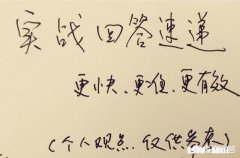 实战回答速递
更快、更准、更有效
(个人观点,仅供参考)